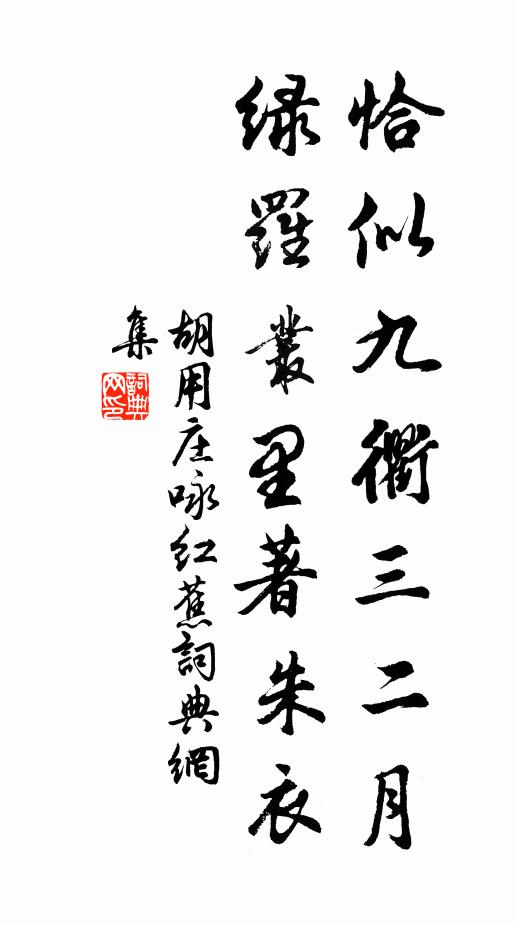 恰似九衢三二月
綠羅叢里著朱衣
胡用庄咏红蕉詞典網
集
詞典
网印